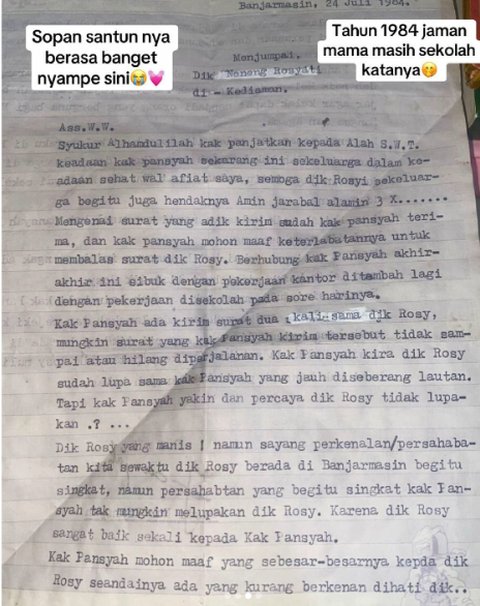 Banjarmasin, 24 Juli 1984.
Sopan santun nya
berasa banget
nyampe sini😭💓
Tahun 1984 jaman
mama masih sekolah
katanya🤭
Menjumpai.
Dik Neneng Rosyati
di - Kediaman.
Ass.W.W.
Syukur Alhamdulilah kak panjatkan kepada Alah S.W.T.
keadaan kak pansyah sekarang ini sekeluarga dalam ke-
adaan sehat wal afiat saja, semoga dik Rosyi sekeluar-
ga begitu juga hendaknya Amin jarabal alamin 3 X.......
Mengenai surat yang adik kirim sudah kak pansyah teri-
ma, dan kak pansyah mohon maaf keterlabatannya untuk
membalas surat dik Rosy. Berhubung kak Pansyah akhir-
akhir ini eibuk dengan pekerjaan kantor ditambah lagi
dengan pekerjaan disekolah pada sore harinya.
Kak Pansyah ada kirim surat dua kali sama dik Rosy,
mungkin surat yang kak Pansyah kirim tersebut tidak sam-
pai atau hilang diperjalanan. Kak Pansyah kira dik Rosy
sudah lupa sama kak Pansyah yang jauh diseberang lautan.
Tapi kak Pansyah yakin dan percaya dik Rosy tidak lupa-
kan .? ...
Dik Rosy yang manis ! namun sayang perkenalan/persahaba-
tan kita sewaktu dik Rosy berada di Banjarmasin begitu
singkat, namun persahabtan yang begitu singkat kak Pan-
syah tak mungkin melupakan dik Rosy. Karena dik Rosy
sangat baik sekali kepada Kak Pansyah.
Kak Pansyah mohon maaf yang sebesar-besarnya kepda dik
Rosy seandainya ada yang kurang berkenan dihati dik..